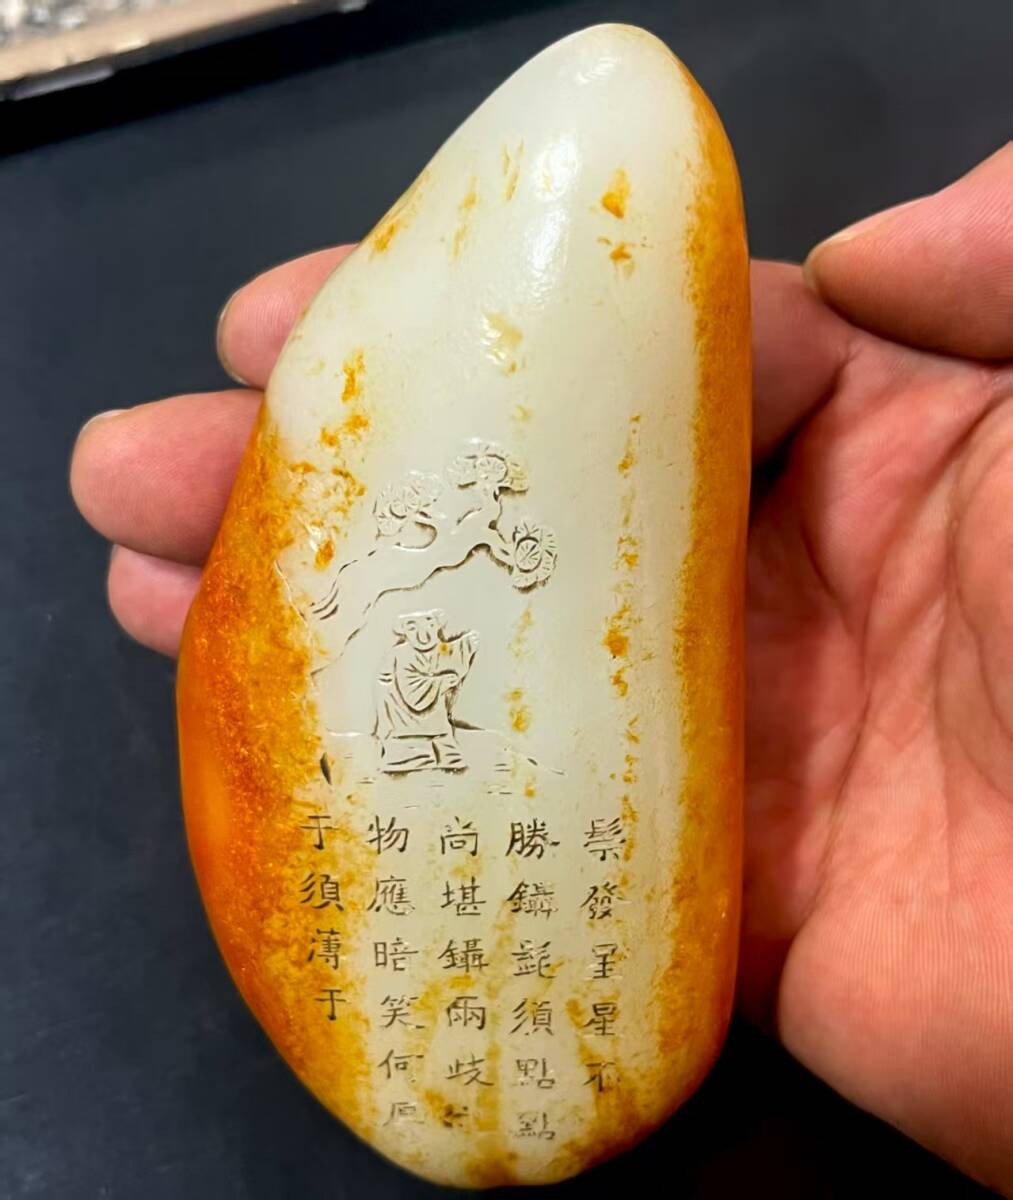 鬃發星星不
勝鑷髭須點點
尚堪鑷兩歧
物應暗笑何厚
于須薄于